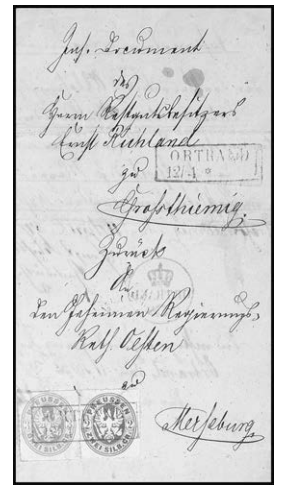 Inh. Document
des
Herrn Restgutsbesitzers
Ernst Richland
zu
ORTRAND
12/4
Großthiemig.
Zurück
an
den Geheimen Regierungs-
Rath Oesten
zu
Merseburg
PREUSSEN
ZWEI SILB. GR.
PREUSSEN
ZWEI SILB. GR.